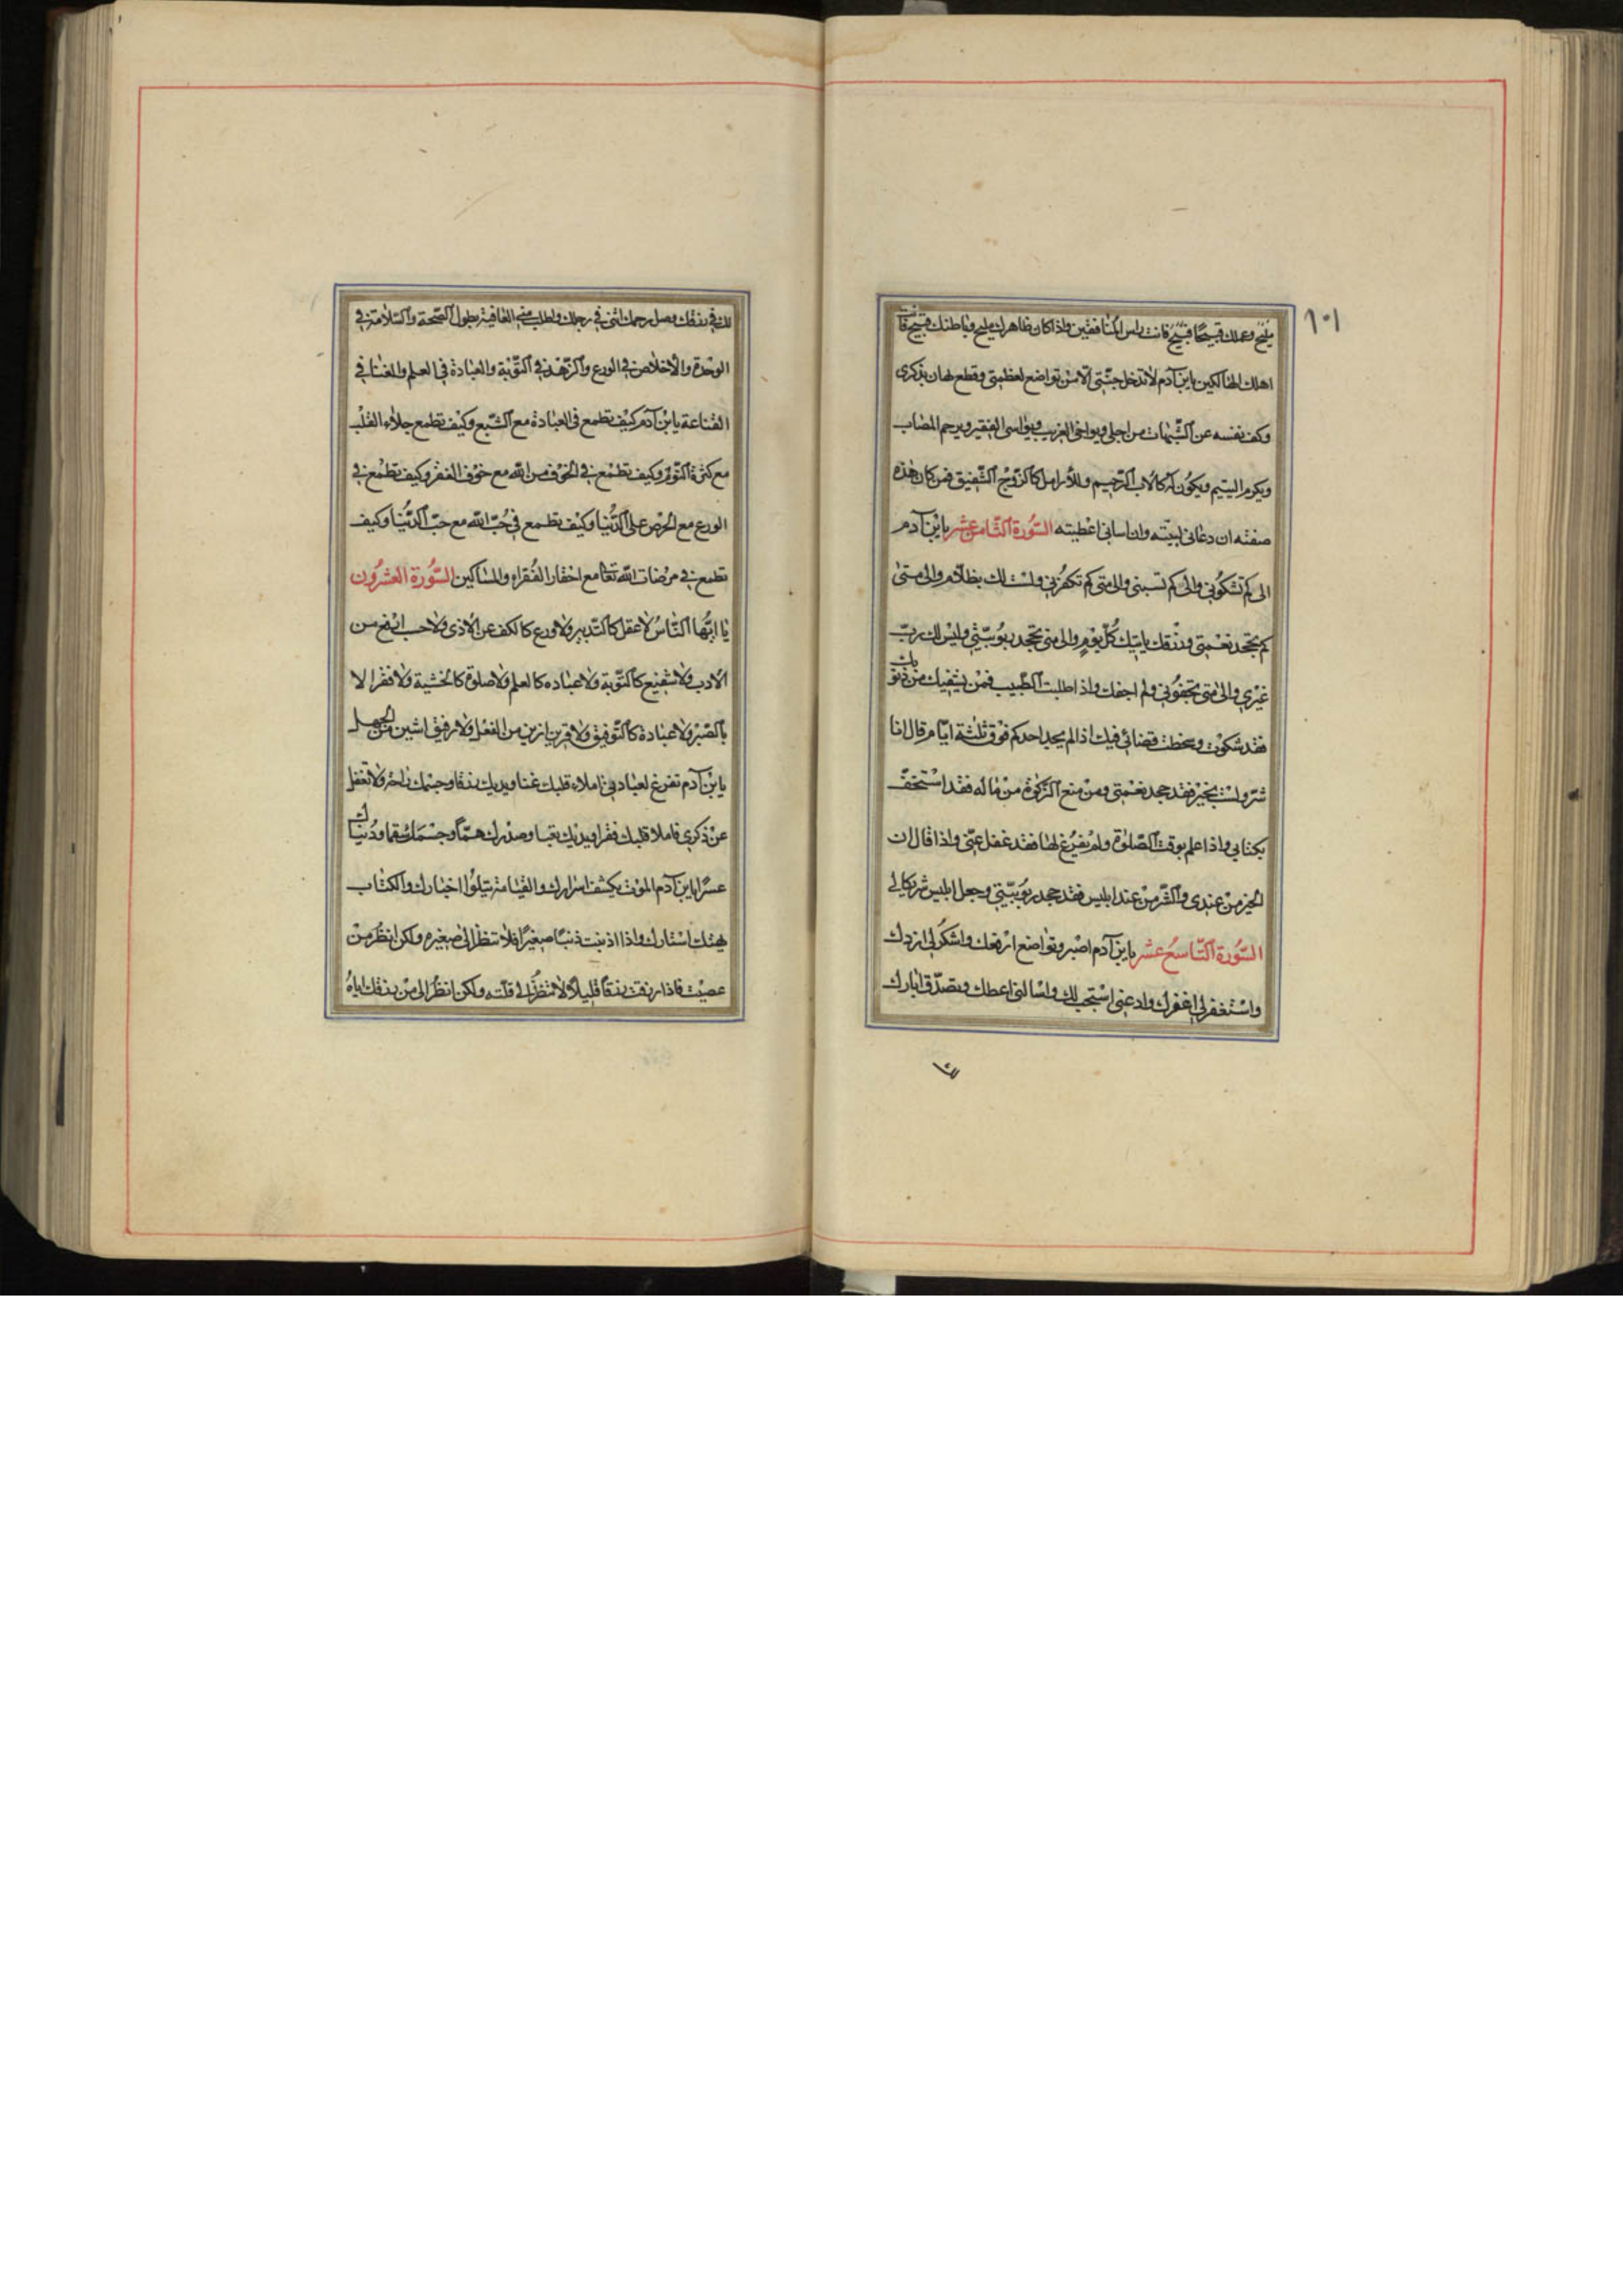 ١٠١
مليح وعملك قبيحًا قبيح فانت راس المنافقين واذا كان ظاهرك مليح وباطنك قبيح فانت
اهلك الهالكين يا بن آدم لا تدخل جنّتي الّا من تواضع لعظمتي وقطع نهاره بذكرى
وكف نفسه عن الشّهات من اجلى ويواخى الغريب ويواسى الفقير ويرحم المصاب
ويكرم اليتيم ويكون له كالاب الرّحيم وللأرامل كالزّوج الشّفيق فمن كان هذه
صفته ان دعانى لبيّته وان سانى اعطيته السّورة الثّامن عشر يا بن آدم
الى كم تشكونى والى كم تسبنى والى متى كم تكفرنى ولست لك بظلّام والى متى
كم تجحد نعمتى ورزقك ياتيك كلّ يوم والى متى تجحد ربوبيّتى وليس لك ربّ
غيرى والى متى تجفونى ولم اجفك واذا طلبت الطّبيب فمن يشفيك من ذنوبك
فقد شكوت وسخطت قضائى فيك اذا لم يجد احدكم قوق ثلثة ايّام قال انا
شرّ ولست بخير فقد جحد نعمتى ومن منع الزّكوة من ماله فقد استخفّ
بكتابى واذا علم بوقت الصّلوة ولم يفرغ لها فقد غفل عنّى واذا قال ان
الخير من عندى والشّر من عند ابليس فقد جحد ربوبيّتى وجعل ابليس شريكا لى
السّورة التّاسع عشر يا بن آدم اصبر وتواضع ارفعك واشكر لى ازدك
واستغفر لى اغفر لك وادعنى استجب لك واسالنى اعطك وتصدّق ابارك
لك
لك فى رزقك وصل رحمك اثنى فى رجلك واطلب منى العافية بطول الصّحة والسّلامة فى
الوحدة والأخلاص فى الورع والزّهد فى التّوبة والعبادة فى العلم والغنا فى
القناعة يا بن آدم كيف تطمع فى العبادة مع الشّبع وكيف تطمع جلاء القلب
مع كثرة النّوم وكيف تطمع فى الخوف من الله مع خوف الفقر وكيف تطمع فى
الورع مع الحرص على الدّنيا وكيف تطمع فى حُبّ الله مع حبّ الدّنيا وكيف
تطمع فى مرضات الله تعا مع احقار الفقراء والمساكين السّورة العشرون
يا ايّها النّاس لا عقل كالتّدبير ولا ورع كالكف عن الأذى ولا حسب ارفع من
الادب ولا شفيع كالتّوبة ولا عباده كالعلم ولا صلوة كالخشية ولا فقرا لا
بالصّبر ولا عبادة كالتّوفيق ولا قرين ازين من العقل ولا رفيق اشين من الجهل
يا بن آدم تفرغ لعبادتى املاء قلبك غنا ويديك رزقا وجسمك راحة ولا تغفل
عن ذكرى فاملا قلبك فقرا ويديك تعبا وصدرك همّاً وجسمك سقما ودُنياك
عسرًا يا بن آدم الموت يكشف اسرارك والقيامة يتلوا اخبارك والكتاب
يهتك استارك واذا اذنبت ذنبًا صغيرًا فلا تنظر الى صغيره ولكن انظر من
عصيت فاذا رزقت رزقاً قليلاً لا تنظر الى قلّته ولكن انظر الى من رزقك اياهُ